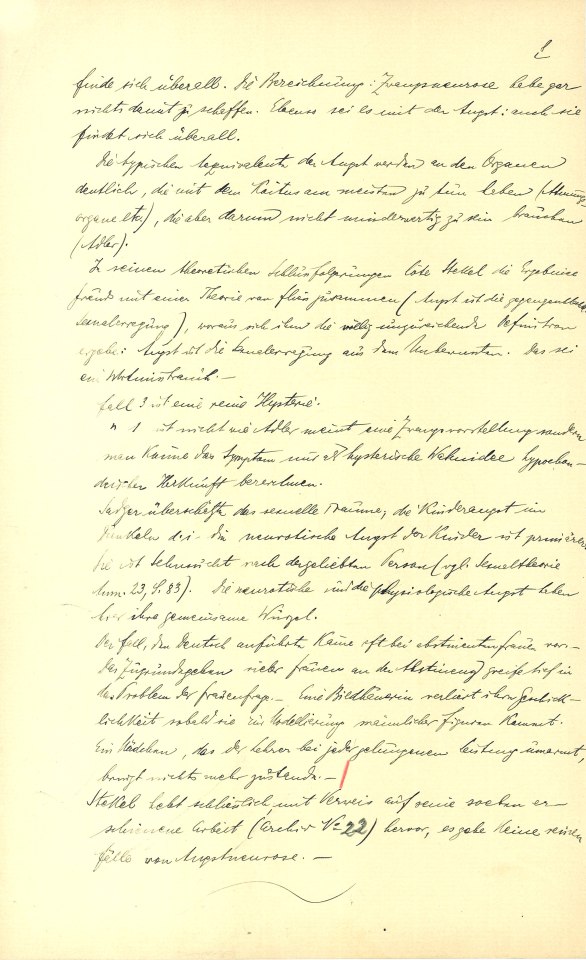 finde sich überall. Die Bezeichnung: Zwangsneurose habe gar
nichts damit zu schaffen. Ebenso sei es mit der Angst: auch sie
findet sich überall.
Die typischen Aequivalente der Angst werden an den Organen
deutlich, die mit dem Koitus am meisten zu tun haben (Atmungs-
organe etc), die aber darum nicht minderwertig zu sein brauchen
(Adler).
In seinen theoretischen Schlussfolgerungen löte Stekel die Ergebnisse
Freuds mit einer Theorie von Fliess zusammen (Angst ist die
Sexualerregung), woraus sich ihm die völlig unzureichende Definition
ergebe: Angst ist die Sexualerregung aus dem Unbewussten. Das sei
ein Wortmissbrauch. —
Fall 3 ist eine reine Hysterie.
" 1 ist nicht wie Adler meint eine Zwangsvorstellung sondern
man könne das Symptom nur als hysterische Wahnidee hypochon-
drischer Herkunft bezeichnen.
Sadger überschätze das sexuelle Trauma; die Kinderangst im
Dunkeln die neurotische Angst der Kinder ist primärer
Sie ist Sehnsucht nach der geliebten Person (vgl. Sexualtheorie
Anm. 23, S. 83). Die neurotische und die physiologische Angst haben
hier ihre gemeinsame Wurzel.
Der Fall, den Deutsch anführte käme oft bei abstinenten Frauen vor. –
Das Zugrundegehen vieler Frauen an der Abstinenz greife tief in
das Problem der Frauenfrage. – Eine Bildhauerin verliert ihre Geschick-
lichkeit sobald sie zur Modellierung männlicher Figuren kommt.
Ein Mädchen, das der Lehrer bei jeder gelungenen Leistung umarmt,
bringt nichts mehr zustande. –
Stekel hebt schliesslich, mit Verweis auf seine soeben er-
schienene Arbeit (Archiv No 22) hervor, es gebe keine reinen
Fälle von Angstneurose. —